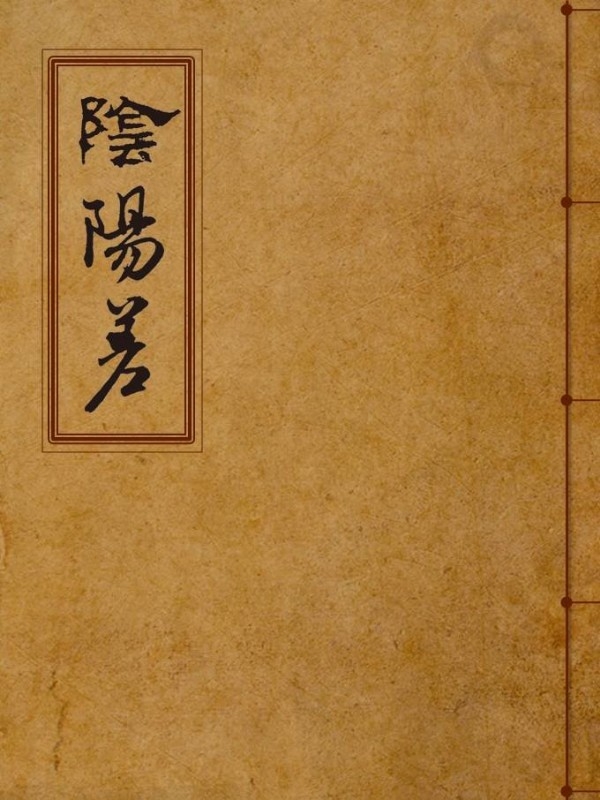 陰陽差